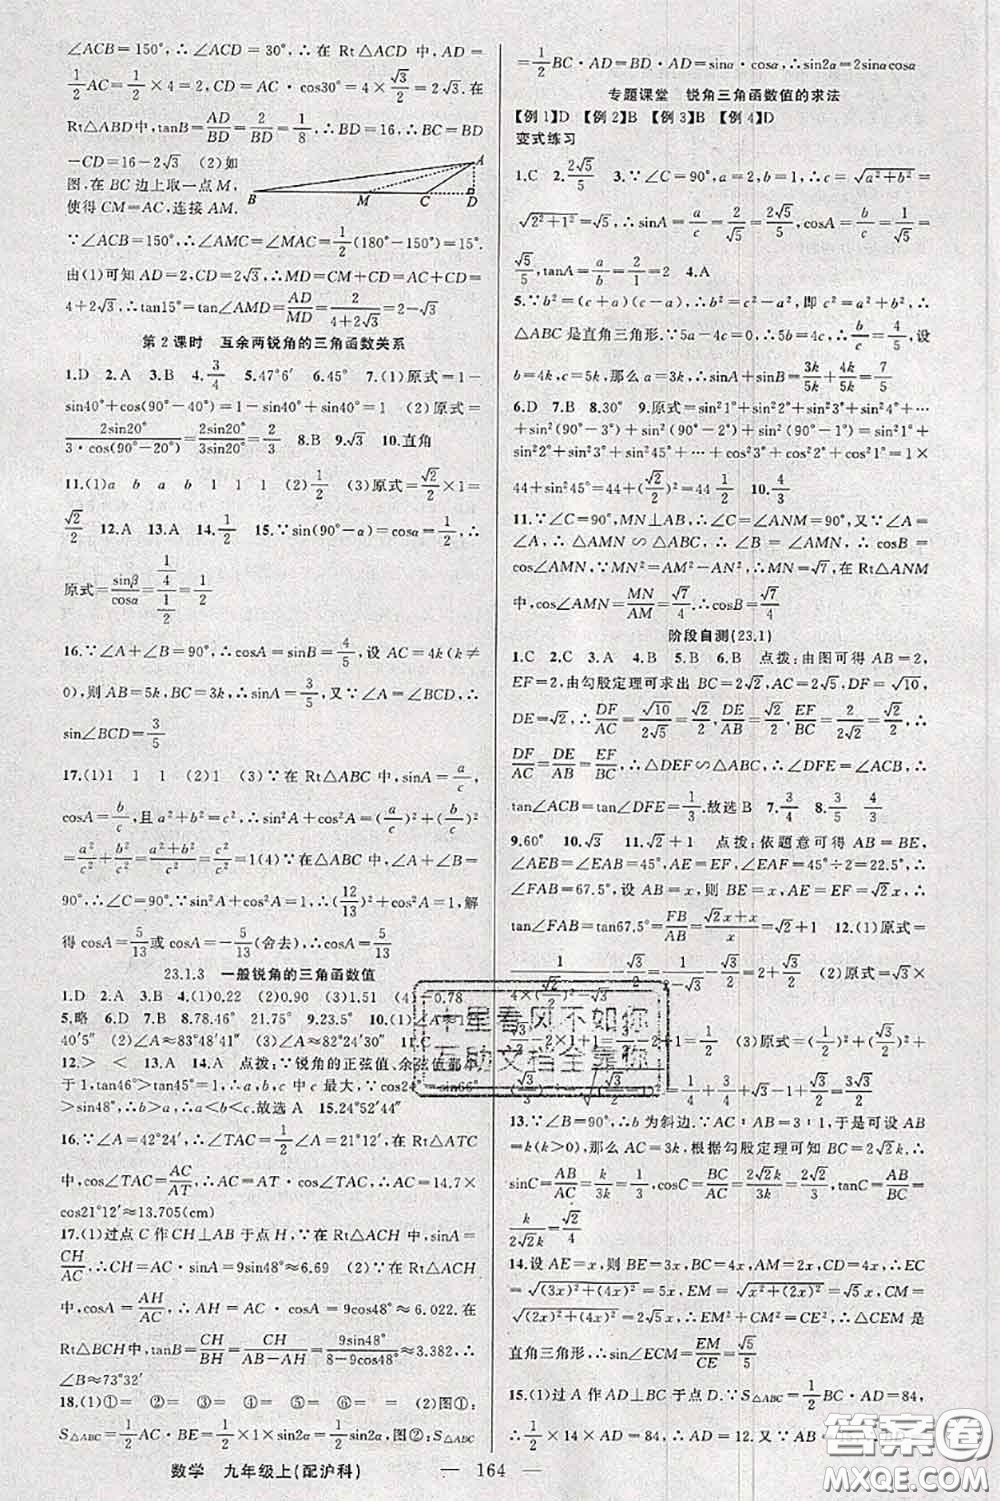 ∠ACB=150°,∴∠ACD=30°,∴在 Rt△ACD 中,AD=
1/2AC=1/2×4=2,CD=AC·cos30°=4×√3/2=2√3.在
Rt△ABD中,tanB=AD/BD=2/BD=1/8,∴BD=16,∴BC=BD
-CD=16-2√3 (2)如
图,在 BC 边上取一点 M,
使得 CM=AC,连接 AM.
A
B M C D
∵∠ACB=150°,∴∠AMC=∠MAC=1/2(180°-150°)=15°.
由(1)可知 AD=2,CD=2√3,∴MD=CM+CD=AC+CD=
4+2√3,∴tan15°=tan∠AMD=AD/MD=2/(4+2√3)=2-√3
第 2 课时 互余两锐角的三角函数关系
1.D 2.A 3.B 4.3/4 5.47°6′ 6.45° 7.(1)原式=1-
sin40°+cos(90°-40°)=1-sin40°+sin40°=1 (2)原式=
2sin20°/(3·cos(90°-20°))=2sin20°/3sin20°=2/3 8.B 9.√3 10.直角
11.(1)a b a b 1 1 1 (2)1/2 (3)原式=√2/2×1=
√2/2 12.A 13.A 14.1/2 15.∵sin(90°-α)=cosα=1/2,∴
原式=sinβ/cosα=(1/4)/(1/2)=1/2
16.∵∠A+∠B=90°,∴cosA=sinB=4/5,设 AC=4k(k≠
0),则 AB=5k,BC=3k,∴sinA=3/5,又∵∠A=∠BCD,∴
sin∠BCD=3/5
17.(1)1 1 1 (2)1 (3)∵在 Rt△ABC 中,sinA=a/c,
cosA=b/c,且 a²+b²=c²,∴sin²A+cos²A=(a/c)²+(b/c)²
=a²/c²+b²/c²=(a²+b²)/c²=c²/c²=1(4)∵在△ABC 中,∠A+∠B=
90°,∴∠C=90°.∵sin²A+cos²A=1,∴(12/13)²+cos²A=1,解
得 cosA=5/13或 cosA=-5/13(舍去),∴cosA=5/13
23.1.3 一般锐角的三角函数值
1.D 2.A 3.(1)0.52 (2)0.90 (3)1.51 (4)-0.78
5.略 6.D 7.B 8.78.46° 21.75° 9.23.5° 10.(1)∠A≈12°
40′5″ (2)∠A≈83°48′41″ (3)∠A≈82°24′30″ 11.C
12.> < 13.A 14.A 点拨:∵锐角的正弦值、余弦值都小
于1,tan46°>tan45°=1,∴a,b,c 中 c 最大,∵cos24°=sin66°
>sin50°,∴b>a,∴a<b<c.故选 A 15.24°52′44″
16.∵∠A=42°24′,∴∠TAC=1/2∠A=21°12′,在 Rt△ATC
中,cos∠TAC=AC/AT,∴AC=AT·cos∠TAC,∴AC=14.7×
cos21°12′≈13.705(cm)
17.(1)过点 C 作CH⊥AB 于点 H,∵在 Rt△ACH 中,sinA=
CH/AC,∴CH=AC·sinA=9sin48°≈6.69 (2)∵在 Rt△ACH
中,cosA=AH/AC,∴AH=AC·cosA=9cos48°≈6.022.在
Rt△BCH中,tanB=CH/BH=CH/(AB-AH)=9sin48°/(8-9cos48°)≈3.382,∴
∠B≈73°32′
18.(1)① = ② = ③ = ④ = ⑤ = (2)图①:
S△ABC=1/2AC·BE=1/2×1×sin2α=1/2sin2α,图②:S△ABC
=1/2BC·AD=BD·AD=sinα·cosα,∴sin2α=2sinαcosα
专题课堂 锐角三角函数值的求法
【例 1】D 【例 2】B 【例 3】B 【例 4】D
变式练习
1.C 2.2√5/5 3.∵∠C=90°,a=2,b=1,∴c=√(a²+b²)=
√(2²+1²)=√5,∴sinA=a/c=2/√5=2√5/5,cosA=b/c=1/√5=
√5/5,tanA=a/b=2/1=2 4.A
5.∵b²=(c+a)(c-a),∴b²=c²-a²,即 c²=a²+b²,∴
△ABC 是直角三角形.∵5b-4c=0,∴5b=4c,∴b/c=4/5,设
b=4k,c=5k,那么 a=3k,∴sinA+sinB=3k/5k+4k/5k=7/5
6.D 7.B 8.30° 9.原式=sin²1°+sin²2°+sin²4°+…
+sin²(90°-2°)+sin²(90°-1°)=sin²1°+
sin²2°+sin²3°+sin²45°+…+cos²3°+cos²2°+cos²1°=1×
44+sin²45°=44+(√2/2)²=44 1/2 10.4/3
11.∵∠C=90°,MN⊥AB,∴∠C=∠ANM=90°,又∵∠A=
∠A,∴△AMN∽△ABC,∴∠B=∠AMN,∴cosB=
cos∠AMN,∵MN²=AM²-AN²,∴MN=√7,在 Rt△ANM
中,cos∠AMN=MN/AM=√7/4.∴cosB=√7/4
阶段自测(23.1)
1.C 2.C 3.A 4.B 5.B 6.B 点拨:由图可得 AB=2,
EF=2,由勾股定理可求出 BC=2√2,AC=2√5,DF=√10,
DE=√2,∴DF/AC=√10/2√5=√2/2,DE/AB=√2/2,EF/BC=2/2√2=√2/2,∴
DF/AC=DE/AB=EF/BC,∴△DEF∽△ABC,∴∠DFE=∠ACB,∴
tan∠ACB=tan∠DFE=1/3.故选 B 7.3/4 8.3/5 3/4
9.60° 10.√3 11.√2+1 点拨:依题意可得 AB=BE,
∠AEB=∠EAB=45°,AE=EF,∴∠EAF=45°÷2=22.5°,∴
∠FAB=67.5°,设 AB=x,则 BE=x,AE=EF=√2x,∴
tan∠FAB=tan67.5°=FB/AB=(√2x+x)/x=√2+1 12.(1)原式=
(2)原式=
(3)原式=
13.∵∠B=90°,∴b 为斜边,∵CA∶AB=3∶1,于是可设 AB
=k(k>0),那么 AC=3k,根据勾股定理可知 BC=2√2k,∴
sinC=AB/AC=k/3k=1/3,cosC=BC/AC=2√2k/3k=2√2/3,tanC=AB/BC=
k/2√2k=√2/4
14.设 AE=x,则 BE=3x,BC=4x,AM=2x,CD=4x,∴EC
=√((3x)²+(4x)²)=5x,EM=√(x²+(2x)²)=√5x,CM=
√((2x)²+(4x)²)=2√5x,∴EM²+CM²=CE²,∴△CEM 是
直角三角形,∴sin∠ECM=EM/CE=√5/5
15.(1)过 A 作AD⊥BC 于点 D.∵S△ABC=1/2BC·AD=84,
∴1/2×14×AD=84,∴AD=12
十里春风不如你
互助文档全靠你
答案圈
MXQE.COM
数学 九年级上(配沪科) — 164 —